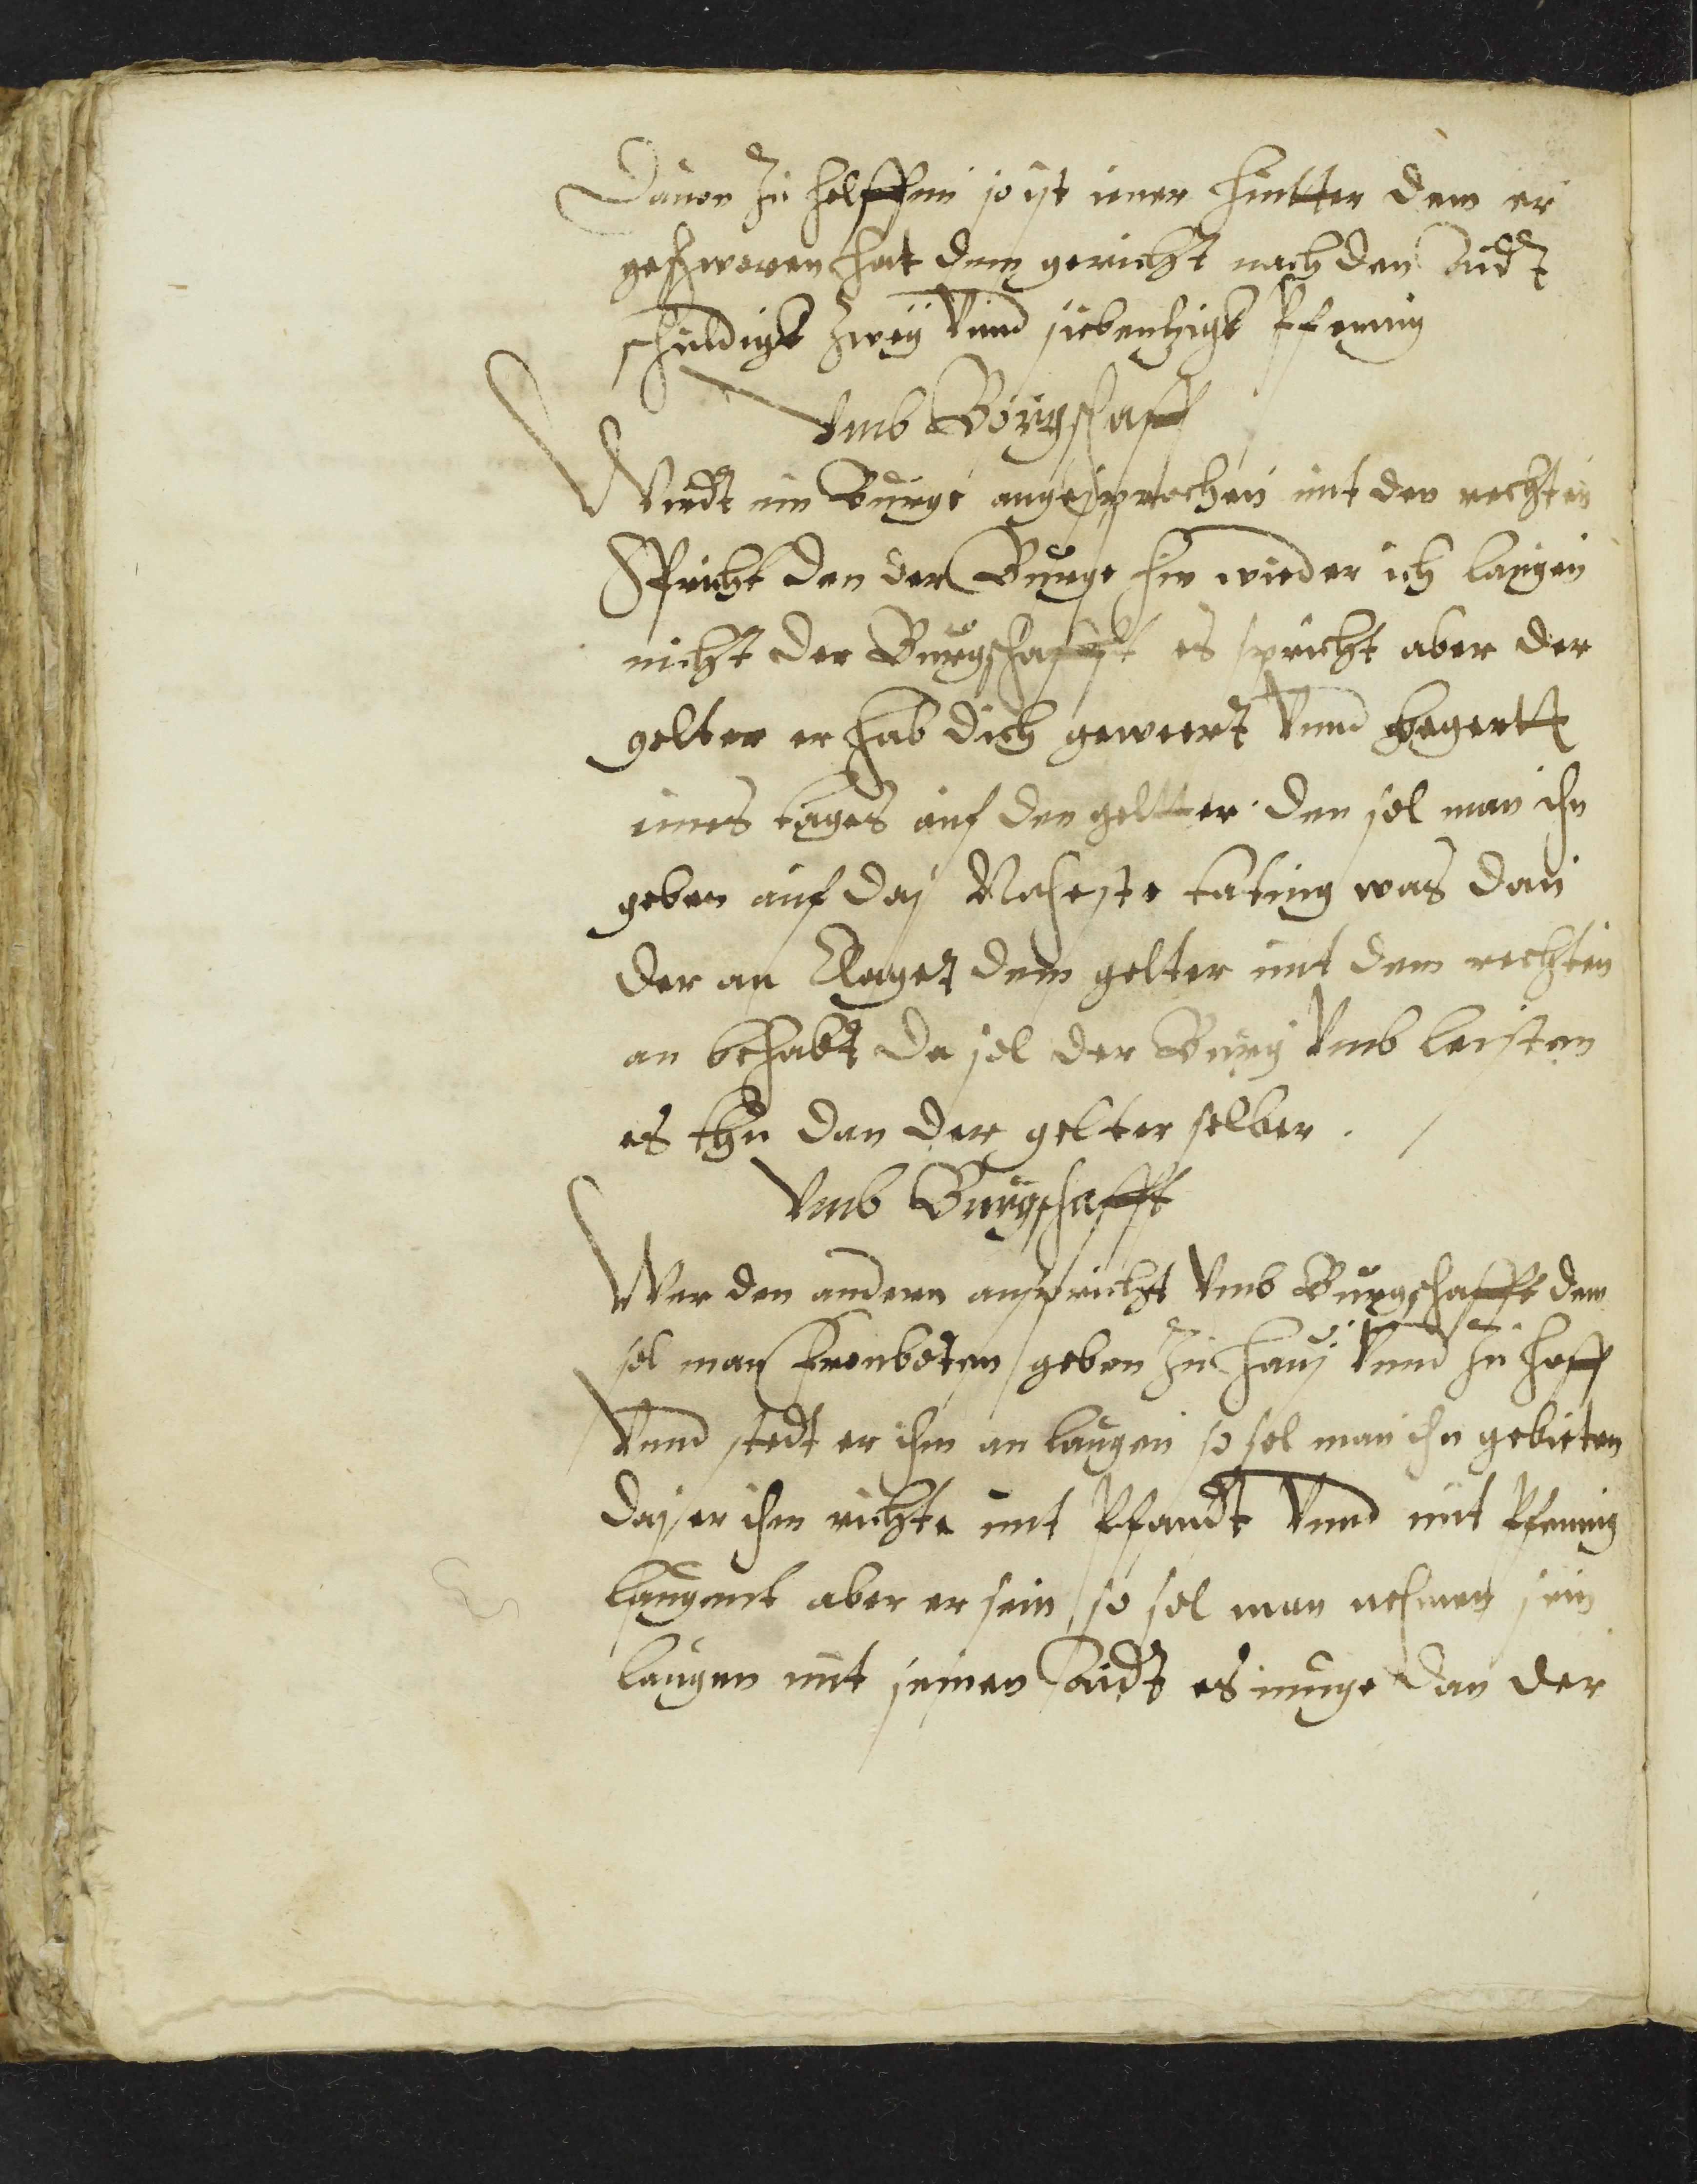 Dauon zu helffenn so ist iener hintter dem er
geschworen hat dem gericht nach den Aidt
schuldigk zwey vnnd siebenzigk Pfennig
Vmb Borgschafft
Wirdt ein Burge angesprochen mit den rechten
Spricht den der Burge hin wieder ich laugen
nicht der Burgschafft es spricht aber der
gelter er hab dich gewert vnnd begertt
eines tages auf den geltter den sol man ihn
geben auf das Neheste tating was dan
der an klaget dem gelter mit dem rechten
an behabt da sol der Burg vmb leisten
es thu dan der gelter selber.
Vmb Burgschafft
Wer den andern anspricht vmb Burgschafft dem
sol man Fronboten geben zu haus vnnd zu hoff
vnnd stedt er ihm an laugen so sol man ihn gebieten
das er ihm richte mit Pfandt vnnd mit Pfennig
laugent aber er sein so sol man nehmen sein
laugen mit seinen Aidt es muge dan der